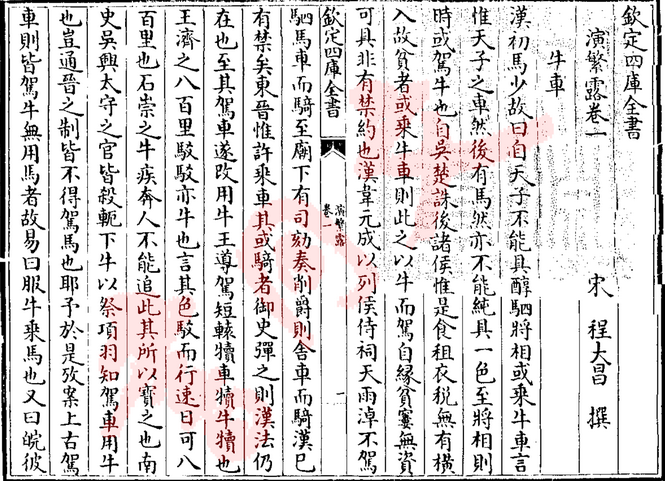 欽定四庫全書
演繁露卷一
宋 程大昌 撰
牛車
漢初馬少故曰自天子不能具醇駟將相或乗牛車言
惟天子之車然後有馬然亦不能純具一色至將相則
時或駕牛也自吳楚誅後諸侯惟是食租衣稅無有橫
入故貧者或乗牛車則此之以牛而駕自緣貧窶無資
可具非有禁約也漢韋元成以列侯侍祠天雨淖不駕
欽定四庫全書
演繁露
卷一
一
駟馬車而騎至廟下有司劾奏削爵則舎車而騎漢已
有禁矣東晉惟許乗車其或騎者御史彈之則漢法仍
在也至其駕車遂改用牛王導駕短轅犢車犢牛犢也
王濟之八百里駮駮亦牛也言其色駮而行速日可八
百里也石崇之牛疾奔人不能追此其所以寶之也南
史吳興太守之官皆殺軛下牛以祭項羽知駕車用牛
也豈通晉之制皆不得駕馬也耶予於是攷案上古駕
車則皆駕牛無用馬者故易曰服牛乗馬也又曰皖彼